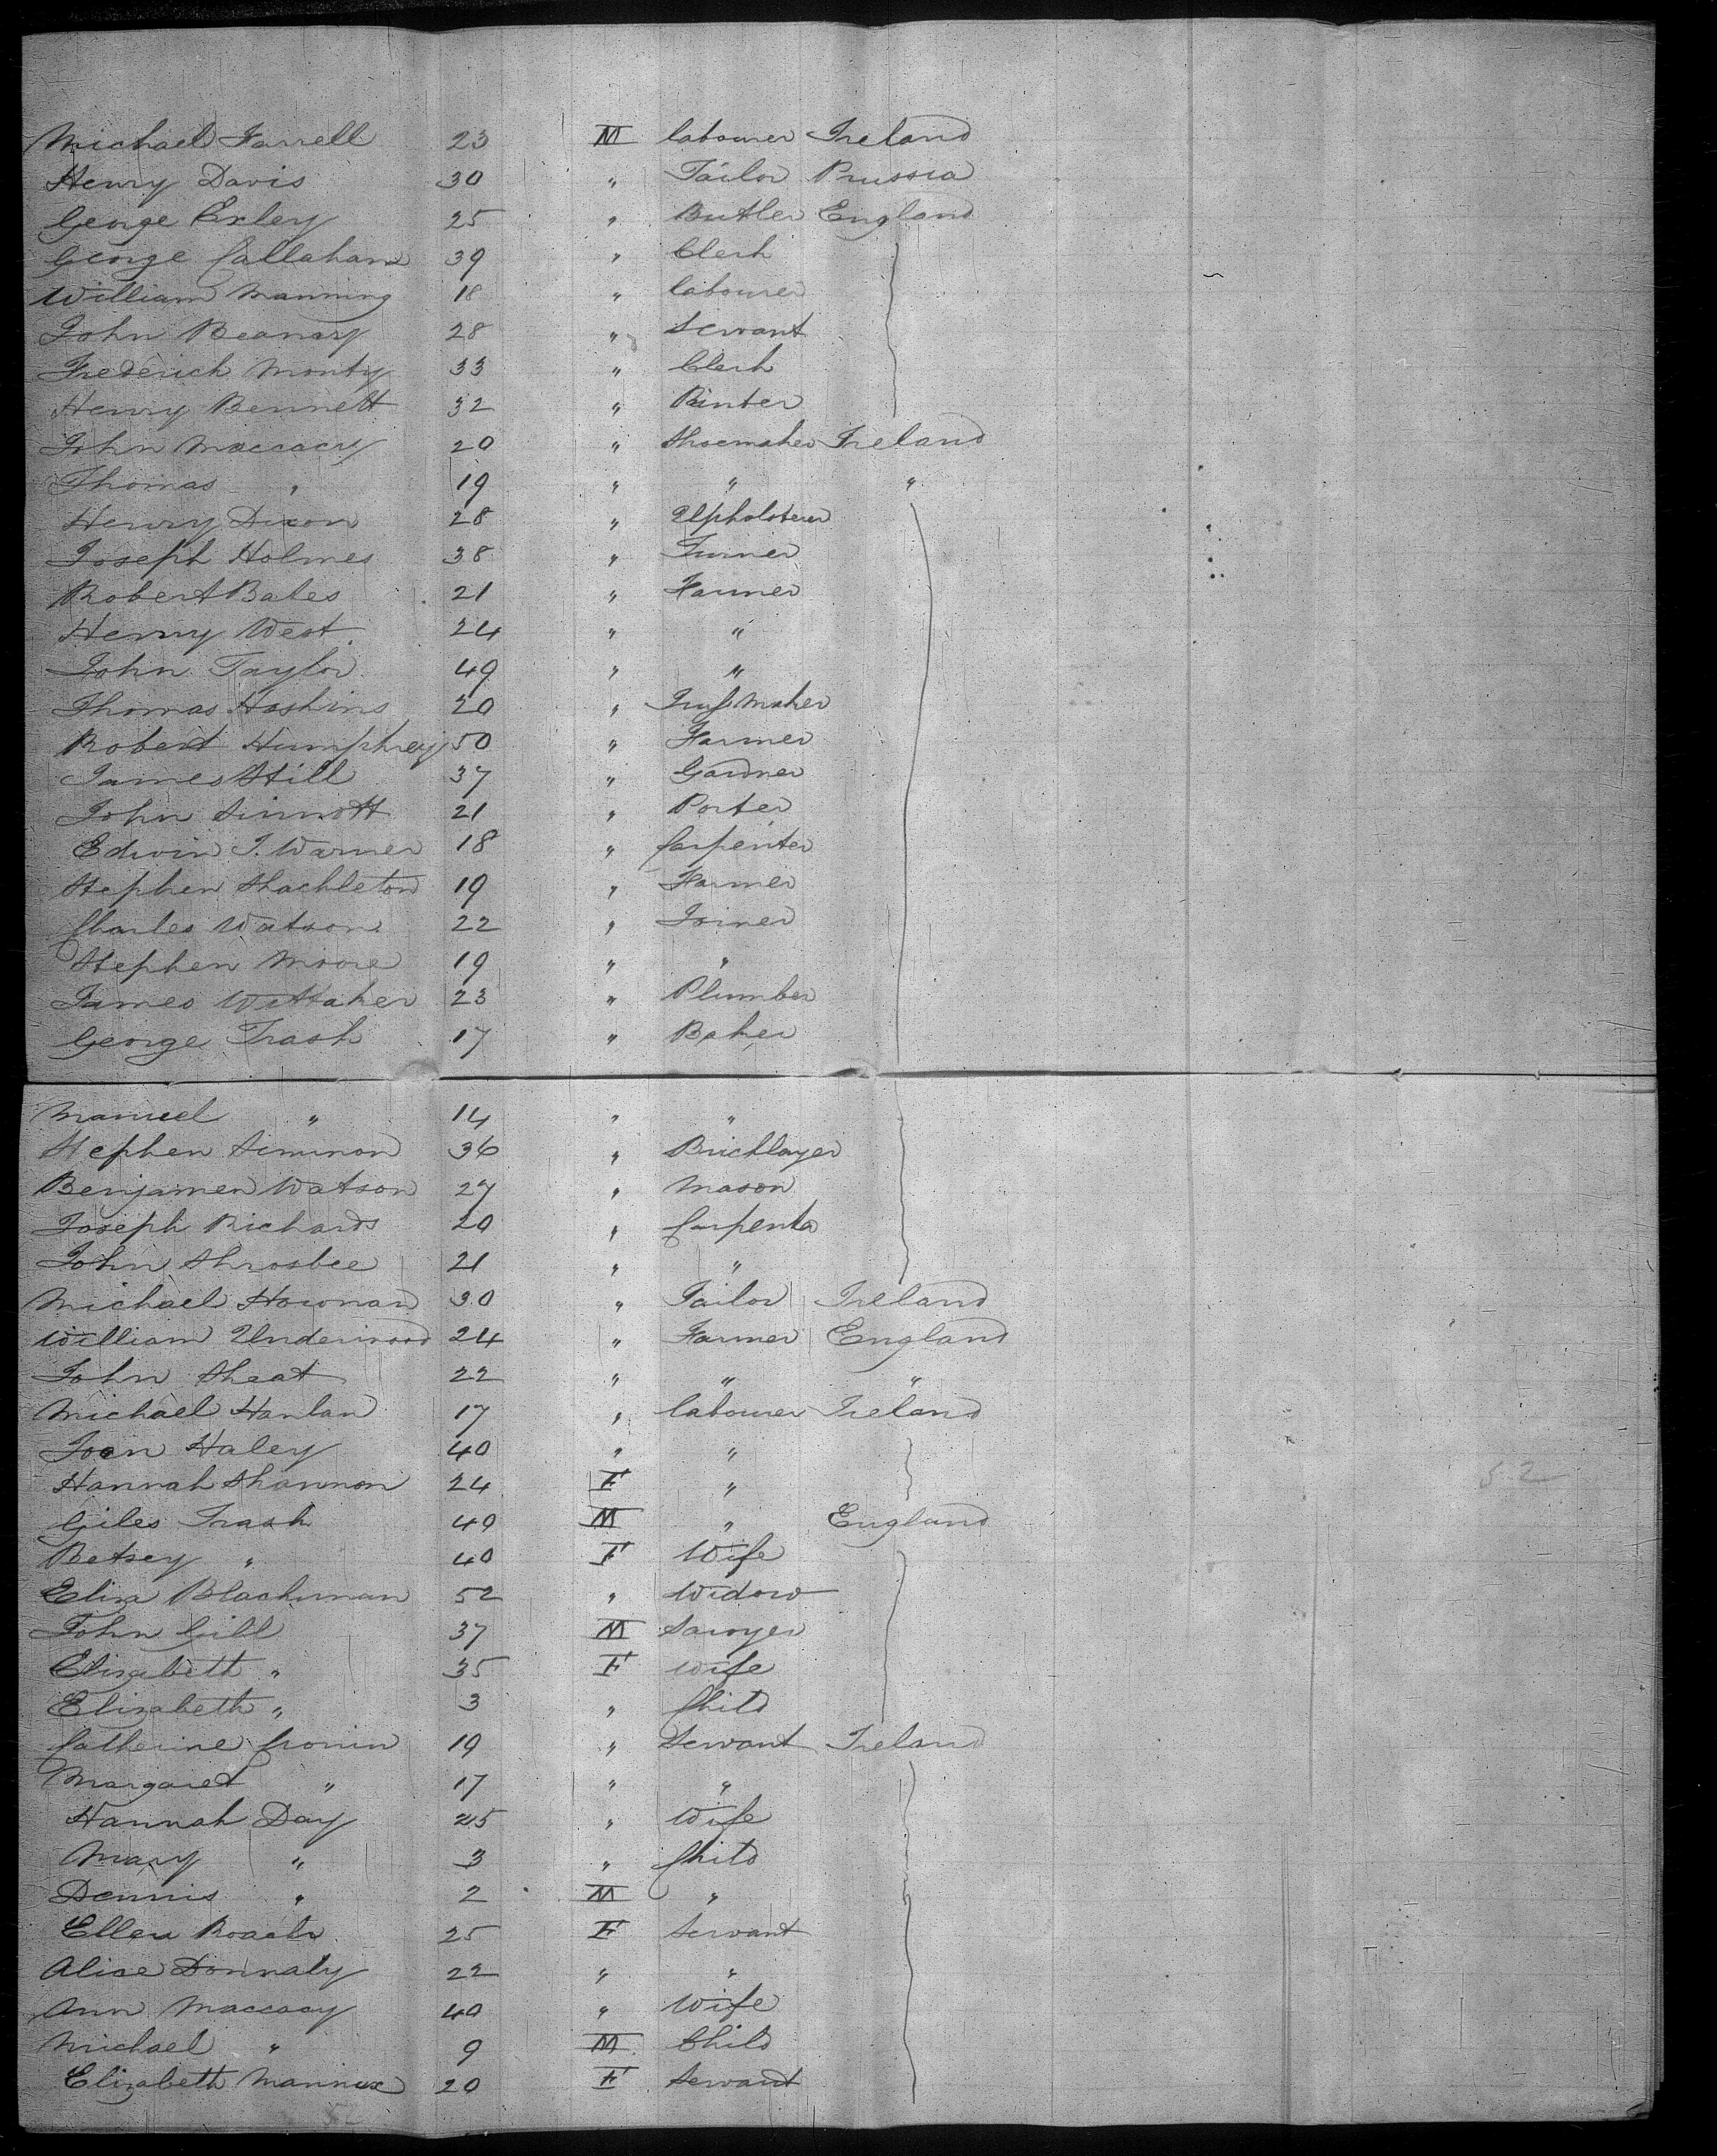 Michael Farrell 23 M labourer Ireland
Henry Davis 30 " Tailor Prussia
George Exley 25 " Butler England
George Callahan 39 " Clerk
William Manning 18 " labourer
John Beanary 28 " Servant
Frederick Monty 33 " Clerk
Henry Bennett 32 " Painter
John Maccacy 20 " Shoemaker Ireland
Thomas " 19 " " "
Henry Dixon 28 " Upholsterer
Joseph Holmes 38 " Turner
Robert Bates 21 " Farmer
Henry West 24 " "
John Taylor 49 " "
Thomas Hoskins 20 " Truss Maker
Robert Humphrey 50 " Farmer
James Hill 37 " Gardner
John Sinnott 21 " Porter
Edwin J. Warner 18 " Carpenter
Stephen Shackleton 19 " Farmer
Charles Watson 22 " Joiner
Stephen Moore 19 " "
James Wittaker 23 " Plumber
George Trash 17 " Baker
Manuel " 14 " "
Stephen Simmon 36 " Bricklayer
Benjamen Watson 27 " Mason
Joseph Richards 20 " Carpenter
John Shrosbee 21 " "
Michael Hownan 30 " Tailor Ireland
William Underwood 24 " Farmer England
John Sheat 22 " " "
Michael Hanlan 17 " labourer Ireland
Joen Haley 40 " "
Hannah Shannon 24 F "
Giles Trash 40 M " England
Betsey " 40 F Wife
Eliza Blackman 52 " Widow
John Gill 37 M Sawyer
Elizabeth " 35 F Wife
Elizabeth " 3 " Child
Catherine Cronin 19 " Servant Ireland
Margaret " 17 " "
Hannah Day 25 " Wife
Mary " 3 " Child
Dennis " 2 M "
Ellen Roach 25 F Servant
Alice Donnaly 22 " "
Ann Maccacy 40 " Wife
Michael " 9 M Child
Elizabeth Mannix 20 F Servant
52